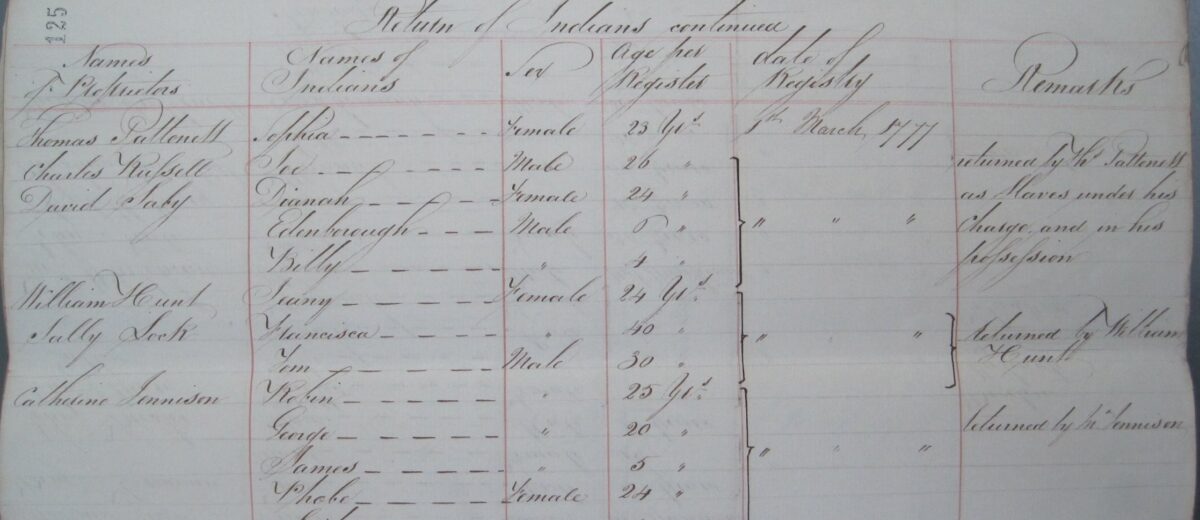 125
Return of Indians continued
Names of Proprietors Names of Indians Sex Age per Register date of Registry Remarks
Thomas Pattonett Sophia Female 23 Yrs. 1st March, 1777
Charles Russell Joe Male 26 " returned by Ths Pattonett
David Saby Dianah Female 24 " as Slaves under his
Edenborough Male 6 " " " " charge, and in his
Billy " 4 " possession
William Hunt Jeany Female 24 Yrs.
Sally Lock Francisca " 40 " " " returned by William
Tom Male 30 " Hunt
Catherine Tonnison Robin " 25 Yrs.
George " 20 " returned by Mrs Tonnison
James " 5 " " " "
Phebe Female 24 "